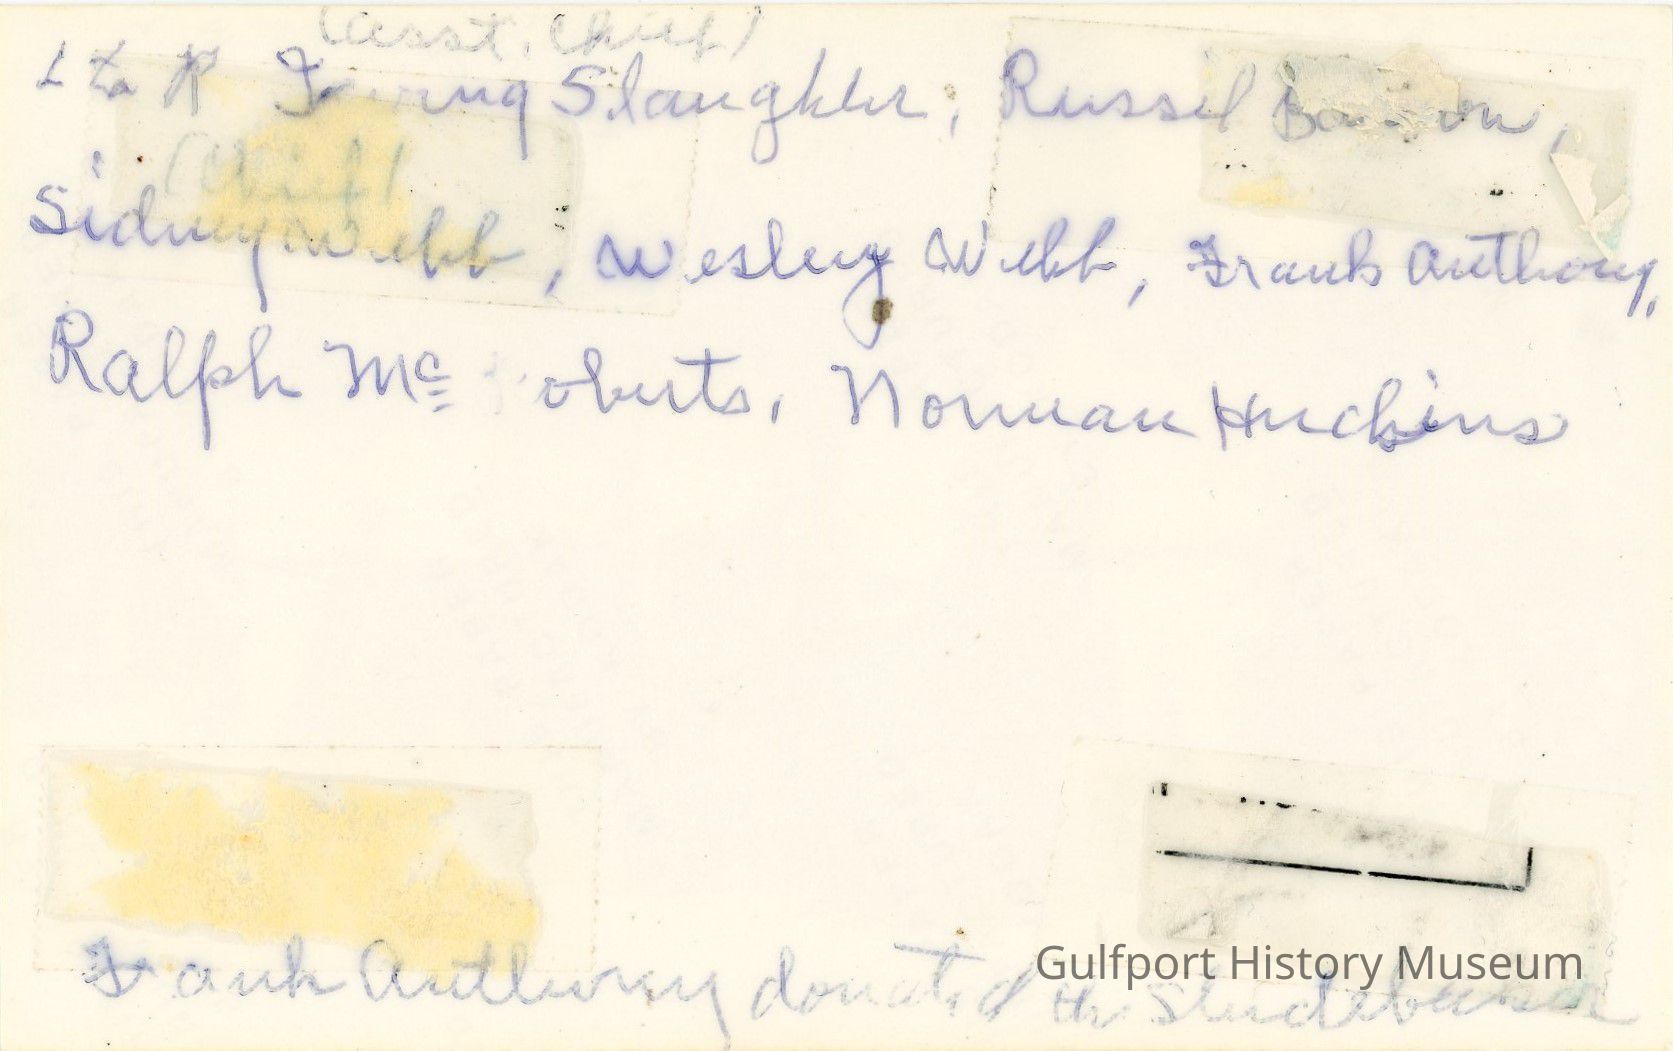 (Asst. Chief)
L to R Irving Slaughter, Russel
(Chief)
Sidney Webb, Wesley Webb, Frank Anthony,
Ralph Mc oberts, Norman Huckins
Frank Anthony donated the Studebaker
Gulfport History Museum